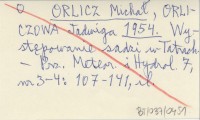 O ORLICZ Michał, ORLI-
CZOWA Jadwiga 1954. Wy-
stępowanie sadzi w Tatrach
- Prz. Meteor. i Hydrol. 7,
nr 3-4: 107-141, il.